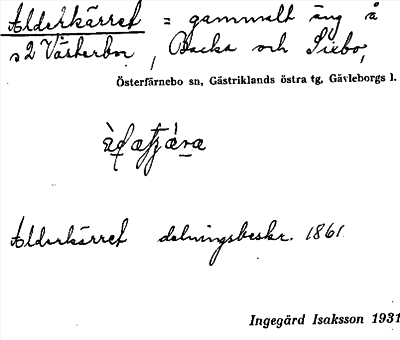 Alderkärret = gammalt äng å
s2 Västerbor, Backa och Isebo,
Österfärnebo sn, Gästriklands östra tg, Gävleborgs l.
Alderkärret delningsbeskr. 1861
Ingegärd Isaksson 1931